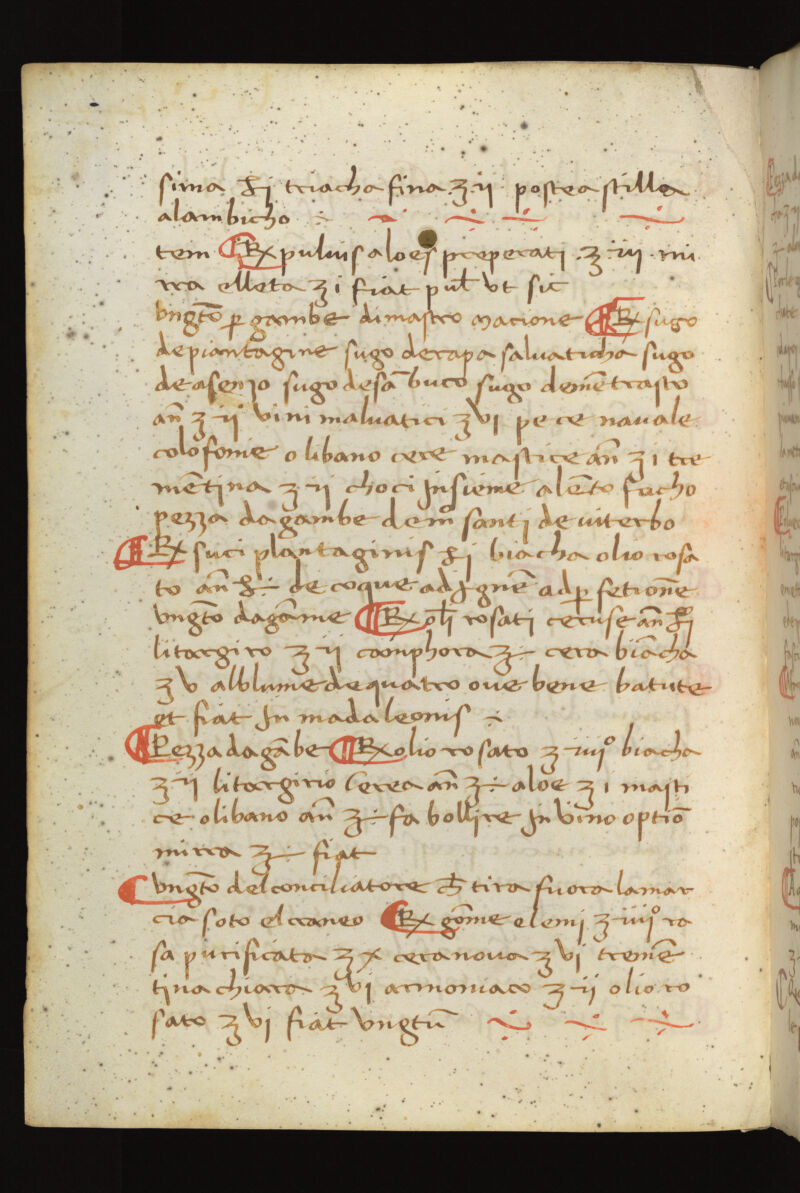 sima ℔ j triacha fina ʒ ij postea stilla
alambicho
tem ℞ puluis aloes preperati ʒ iij mi
rra elleta ʒ i fiat pul̄ vt sic
vngto᷒ ꝑ gambe di mastro macione ℞ sugo
de piantagine sugo de rapa saluaticha sugo
de asenzo sugo de sā buco sugo de mētrasto
an̄ ʒ ij vini maluatici ʒ vi pece nauale
colofonie olibano cere mastice an̄ ʒ i tre
mentina ʒ ij choci insieme a lēto fucho
pezza da gambe de mr̄ santi de viterbo
℞ suci plantaginis ℔ j biacha olio rosa
to an̄ ℔ ÷ decoque ad ignē ad ꝑfetione
vngto᷒ da gāme ℞ ol̄j rosati ceruse an̄ ℔ j
litargiro ʒ ij camphora ʒ ÷ cera biācha
ʒ v alblume de quatro oue bene batute
et fiat in madaleonis ÷
Pezza da gābe ℞ olio rosato ʒ iiijº biacha
ʒ ij litargirio cerea an̄ ʒ ÷ aloe ʒ i masti
ce olibano an̄ ʒ ÷ fa bollire in vino optīo
mirra ʒ ÷ fiat
vngto᷒ del conciliatore ch̄ tira fuora la mar
cia soto el craneo ℞ gōme elemj ʒ iiijº ra
sa purificata ʒ x cera noua ʒ vj tremē
tina chiara ʒ vj armoniaco ʒ ij olio ro
sato ʒ vj fiat vngtū